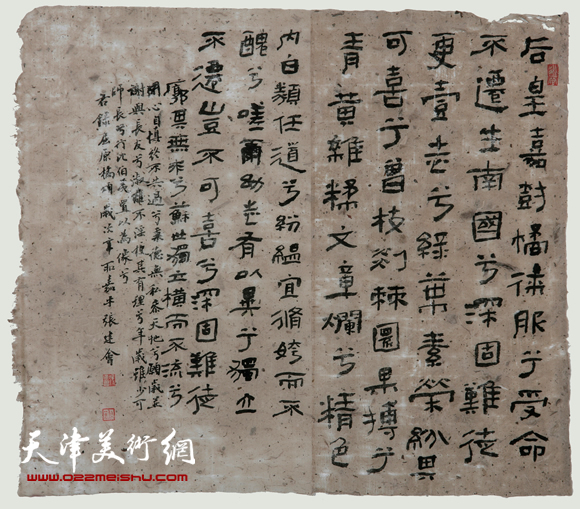 后皇嘉樹橘徠服兮受命
不遷生南國兮深固難徙
更壹志兮綠葉素榮紛其
可喜兮曾枝剡棘圜果摶兮
青黃雜糅文章爛兮精色
內白類任道兮紛緼宜脩姱而不
醜兮嗟爾幼志有以異兮獨立
不遷豈不可喜兮深固難徙
廓其無求兮蘇世獨立橫而不流兮
閉心自慎終不失過兮秉德無私參天地兮願歲並
謝與長友兮淑離不淫梗其有理兮年歲雖少可
師長兮行比伯夷置以為像兮
右錄屈原橘頌歲次辛卯嘉平張建會
天津美術網
www.022meishu.com